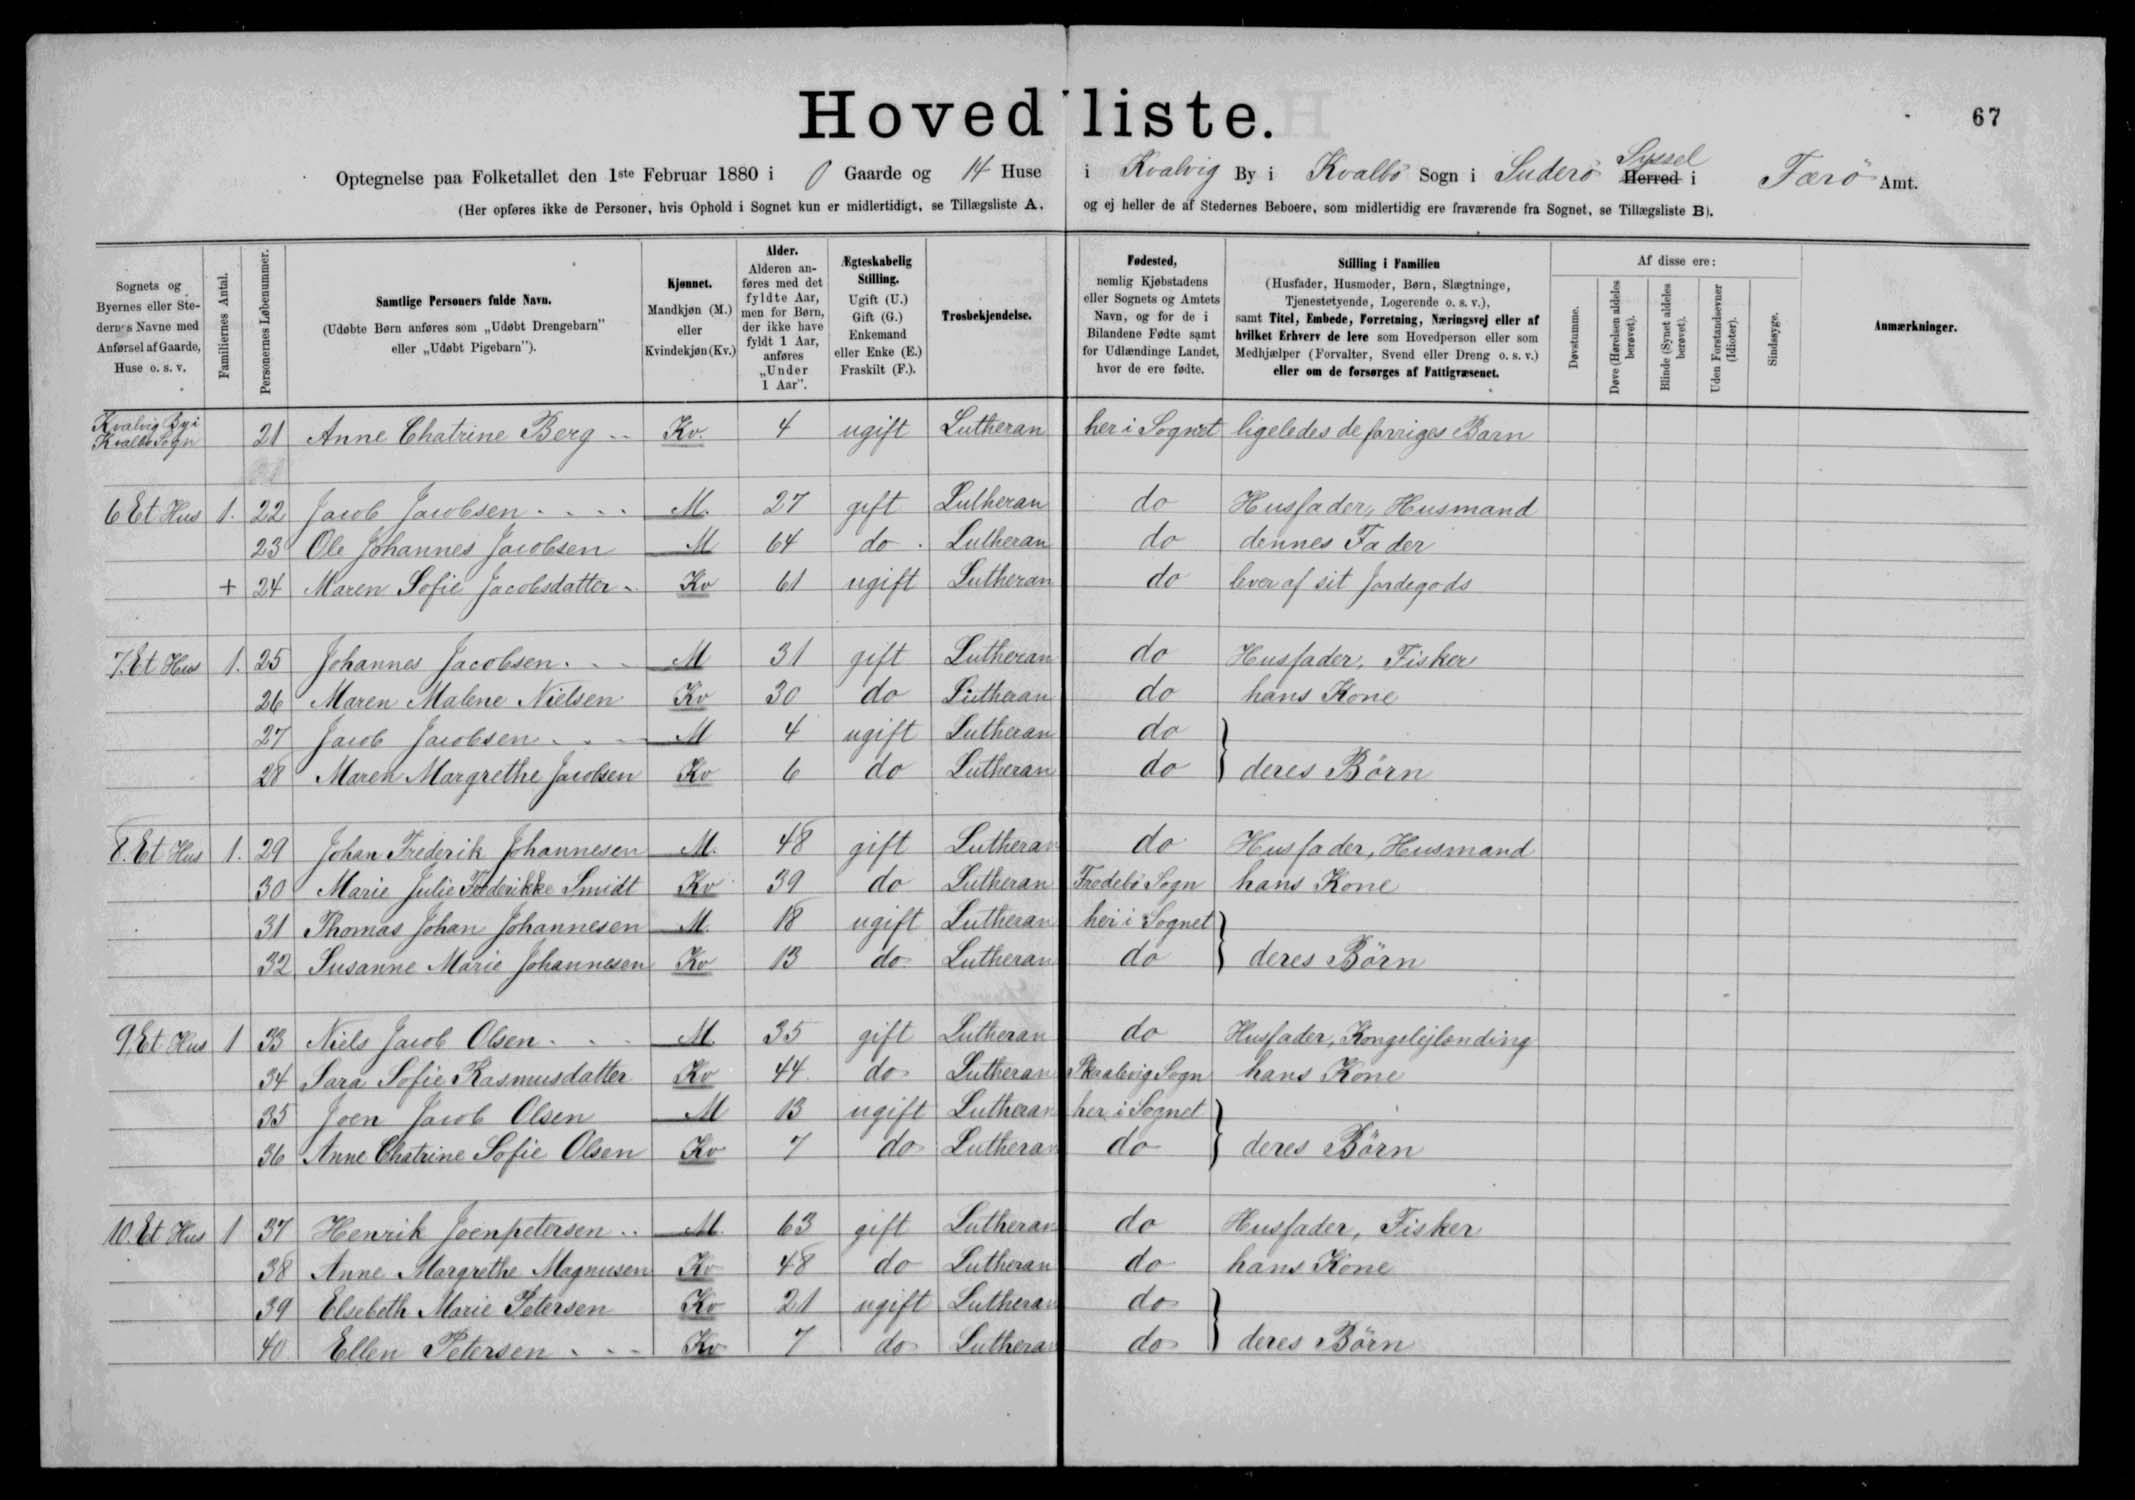 Hovedliste.
67
Optegnelse paa Folketallet den 1ste Februar 1880 i 0 Gaarde og 14 Huse i Kvalvig By i Kvalbø Sogn i Suderø Syssel Herred i Færø Amt.
(Her opføres ikke de Personer, hvis Ophold i Sognet kun er midlertidigt, se Tillægsliste A, og ej heller de af Stedernes Beboere, som midlertidig ere fraværende fra Sognet, se Tillægsliste B).
Sognets og Byernes eller Stedernes Navne med Anførsel af Gaarde, Huse o. s. v.
Familiernes Antal.
Personernes Løbenummer.
Samtlige Personers fulde Navn.
(Udøbte Børn anføres som „Udøbt Drengebarn" eller „Udøbt Pigebarn").
Kjønnet.
Mandkjøn (M.) eller Kvindekjøn (Kv.)
Alder.
Alderen anføres med det fyldte Aar, men for Børn, der ikke have fyldt 1 Aar, anføres „Under 1 Aar".
Ægteskabelig Stilling.
Ugift (U.) Gift (G.) Enkemand eller Enke (E.) Fraskilt (F.).
Trosbekjendelse.
Fødested,
nemlig Kjøbstadens eller Sognets og Amtets Navn, og for de i Bilandene Fødte samt for Udlændinge Landet, hvor de ere fødte.
Stilling i Familien
(Husfader, Husmoder, Børn, Slægtninge, Tjenestetyende, Logerende o. s. v.),
samt Titel, Embede, Forretning, Næringsvej eller af hvilket Erhverv de leve som Hovedperson eller som Medhjælper (Forvalter, Svend eller Dreng o. s. v.) eller om de forsørges af Fattigvæsenet.
Af disse ere:
Døvstumme.
Døve (Hørelsen aldeles berøvet).
Blinde (Synet aldeles berøvet).
Uden Forstandsevner (Idioter).
Sindssyge.
Anmærkninger.
Kvalvig By i
Kvalbø Sogn 21 Anne Chatrine Berg Kv. 4 ugift Lutheran her i Sognet ligeledes de forriges Barn
6 Et Hus 1. 22 Jacob Jacobsen M. 27 gift Lutheran do Husfader, Husmand
23 Ole Johannes Jacobsen M 64 do Lutheran do dennes Fader
+ 24 Maren Sofie Jacobsdatter Kv 61 ugift Lutheran do lever af sit Jordegods
7. Et Hus 1. 25 Johannes Jacobsen M 31 gift Lutheran do Husfader, Fisker
26 Maren Malene Nielsen Kv 30 do Lutheran do hans Kone
27 Jacob Jacobsen M 4 ugift Lutheran do
28 Maren Margrethe Jacobsen Kv 6 do Lutheran do } deres Børn
8. Et Hus 1. 29 Johan Frederik Johannesen M. 48 gift Lutheran do Husfader, Husmand
30 Marie Julie Frederikke Smidt Kv 39 do Lutheran Frodebø Sogn hans Kone
31 Thomas Johan Johannesen M. 18 ugift Lutheran her i Sognet
32 Susanne Marie Johannesen Kv 13 do Lutheran do } deres Børn
9. Et Hus 1 33 Niels Jacob Olsen M. 35 gift Lutheran do Husfader, Kongslejlænding
34 Sara Sofie Rasmusdatter Kv 44 do Lutheran Skaalevig Sogn hans Kone
35 Joen Jacob Olsen M 13 ugift Lutheran her i Sognet
36 Anne Chatrine Sofie Olsen Kv 7 do Lutheran do } deres Børn
10. Et Hus 1 37 Henrik Joenpetersen M. 63 gift Lutheran do Husfader, Fisker
38 Anne Margrethe Magnusen Kv 48 do Lutheran do hans Kone
39 Elsebeth Marie Petersen Kv 21 ugift Lutheran do
40 Ellen Petersen Kv 7 do Lutheran do } deres Børn